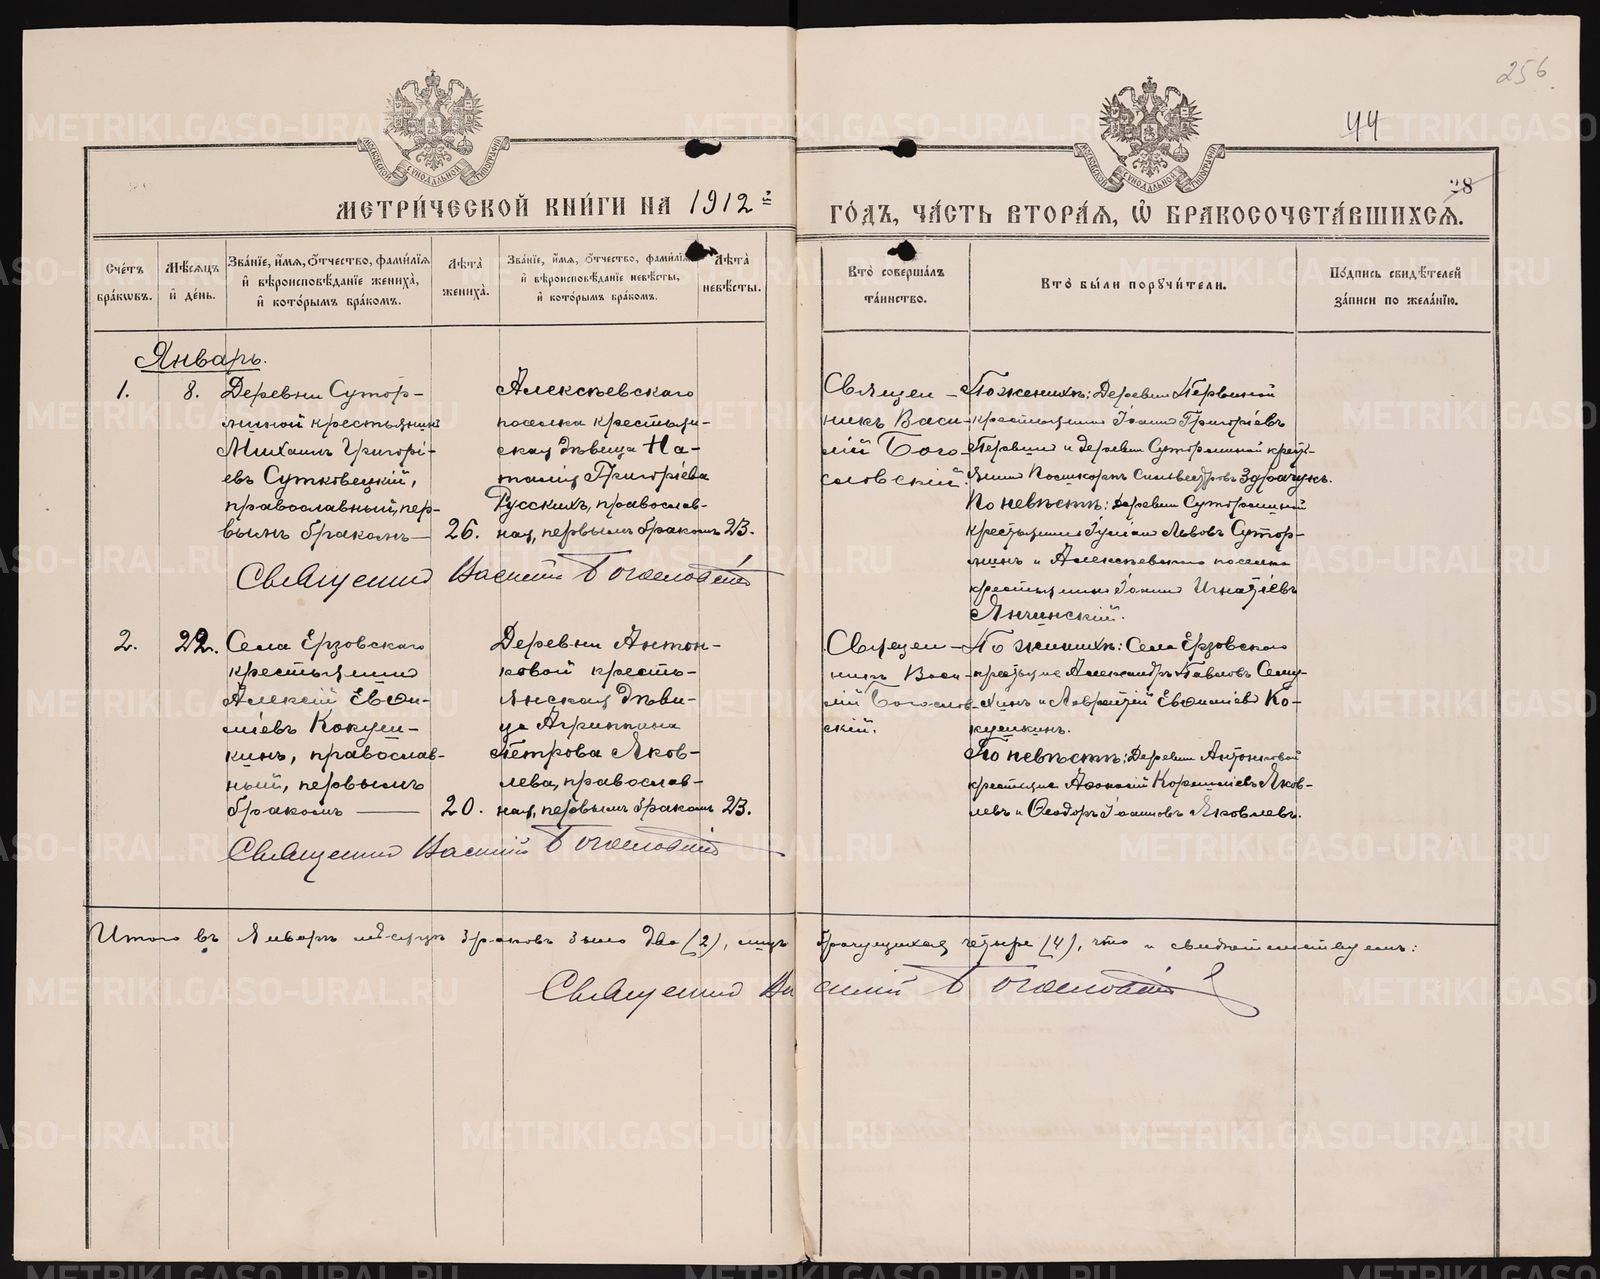 256
44
28
МОСКОВСКОЙ СѴНОДАЛЬНОЙ ТИПОГРАФІИ
МОСКОВСКОЙ СѴНОДАЛЬНОЙ ТИПОГРАФІИ
МЕТРИ́ЧЕСКОЙ КНИ́ГИ НА 1912 й
ГО́ДЪ, ЧА́СТЬ ВТОРА́Ѧ, Ѽ БРАКОСОЧЕТА́ВШИХСѦ.
Счетъ бра́кѡвъ.
Мѣ́сѧцъ и҆ де́нь.
Зва́нїе, и҆́мѧ, о҆́тчество, фами́лїѧ и҆ вѣроисповѣ́данїе жениха̀, и҆ кото́рымъ бра́комъ.
Лѣ́та жениха̀.
Зва́нїе, и҆́мѧ, о҆́тчество, фами́лїѧ и҆ вѣроисповѣ́данїе невѣ́сты, и҆ кото́рымъ бра́комъ.
Лѣ́та невѣ́сты.
Кто̀ соверша́лъ та́инство.
Кто̀ бы́ли порꙋчи́тели.
По́дпись свидѣ́телей за́писи по жела́нїю.
Январь.
1.
8.
Деревни Сутор-
миной крестьянинъ
Михаилъ Григорі-
евъ Сутковецкій,
православный, пер-
вымъ бракомъ
26.
Алексѣевскаго
поселка крестьян-
ская дѣвица На-
талія Григоріева
Русскихъ, православ-
ная, первымъ бракомъ
23.
Священ-
никъ Васи-
лій Бого-
словскій.
По женихѣ: Деревни Первиной
крестьянинъ Іоаннъ Григоріевъ
Первинъ и деревни Суторминой кресть-
янинъ Здрачукъ.
По невѣстѣ: деревни Суторминой
крестьянинъ Іуліанъ Львовъ Сутор-
минъ и Алексѣевскаго поселка
крестьянинъ Іоаннъ Игнатіевъ
Янчинскій.
Священникъ Василій Богословскій
2.
22.
Села Ерзовскаго
крестьянинъ
Алексій Евѳи-
міевъ Кокуш-
кинъ, православ-
ный, первымъ
бракомъ
20.
Деревни Антон-
ковой кресть-
янская дѣви-
ца Агриппина
Петрова Яков-
лева, православ-
ная, первымъ бракомъ
23.
Священ-
никъ Васи-
лій Богослов-
скій.
По женихѣ: Села Ерзовскаго
крестьяне Александръ Павловъ
и Лаврентій Евѳиміевъ Ко-
кушкинъ.
По невѣстѣ: Деревни Антонковой
крестьяне Аѳанасій Корниліевъ Яков-
левъ и Ѳеодоръ Іоанновъ Яковлевъ.
Священникъ Василій Богословскій
Итого въ Январѣ мѣсяцѣ браковъ было два (2), лицъ брачущихся четыре (4), что и свидѣтельствуемъ:
Священникъ Василій Богословскій
METRIKI.GASO-URAL.RU